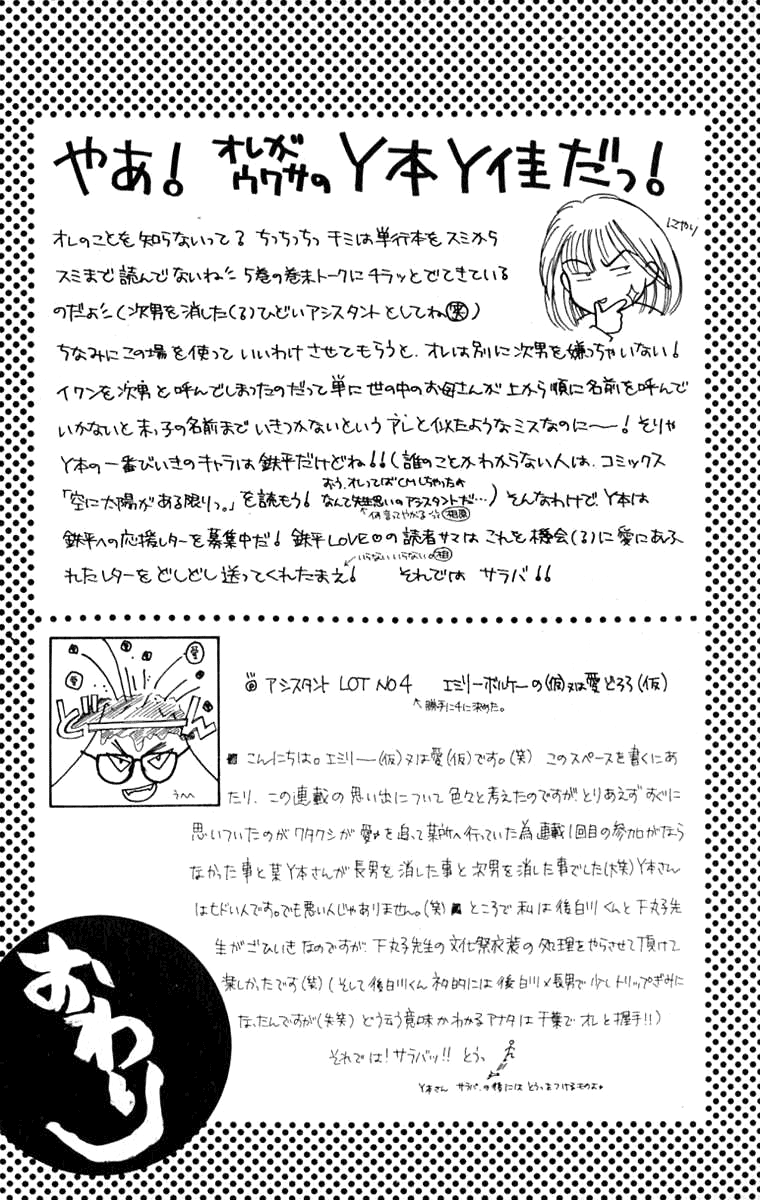 やあ! オレが ウワサの Y本Y佳だっ!
にやり
オレのことを知らないってる ちっちっちっ キミは単行本をスミから
スミまで読んでないね!! 5巻の巻末トークにチラッとでてきている
のだよ!!(次男を消した(る)ひどいアシスタントとしてね(笑))
ちなみにこの場を使って いいわけさせてもらうと、オレは別に次男を嫌っちゃいない!
イワンを次男と呼んでしまったのだって単に世の中のお母さんが上から順に名前を呼んで
いかないと末っ子の名前までいきつかないという アレと似たようなミスなのに〜!そりゃ
Y本の一番びいきのキャラは鉄平だけどね!!(誰のことかわからない人は、コミックス
「空に太陽がある限りっ。」を読もう!
おう、オレってばCMしちゃったよ
なんて先生思いのアシスタントだ…)そんなわけで、Y本は
何言ってやがる
鉄平への応援レターを募集中だ! 鉄平LOVE♡の読者サマは これを機会(る)に愛にあふ
いらないいらない
れたレターをどしどし送ってくれたまえ! それでは サラバ!!
アシスタント LOT NO4 エミリーボルケーの(仮)又は愛どろろ(仮)
勝手に4に決めた。
愛
うへへ
こんにちは。エミリー(仮)又は愛(仮)です。(笑) このスペースを書くにあ
たり、この連載の思い出について色々と考えたのですが とりあえずすぐに
思いついたのがワタクシが愛を追って某所へ行っていた為連載1回目の参加がなら
なかった事と某Y本さんが長男を消した事と次男を消した事でした(大笑)Y本さん
はヒドい人です。でも悪い人じゃありません。(笑) ところで私は後白川くんと下丸子先
生がごひいきなのですが、下丸子先生の文化祭衣装の処理をやらせて頂けて
楽しかったです(笑)(そして後白川くん 私的には後白川×長男で少しトリップぎみに
なったんですが(失笑) どう云う意味かわかるアナタは千葉でオレと握手!!)
それでは!サラバッ!! とうっ
Y本さん サラバの後には とうっをつけるものよ。
おわり